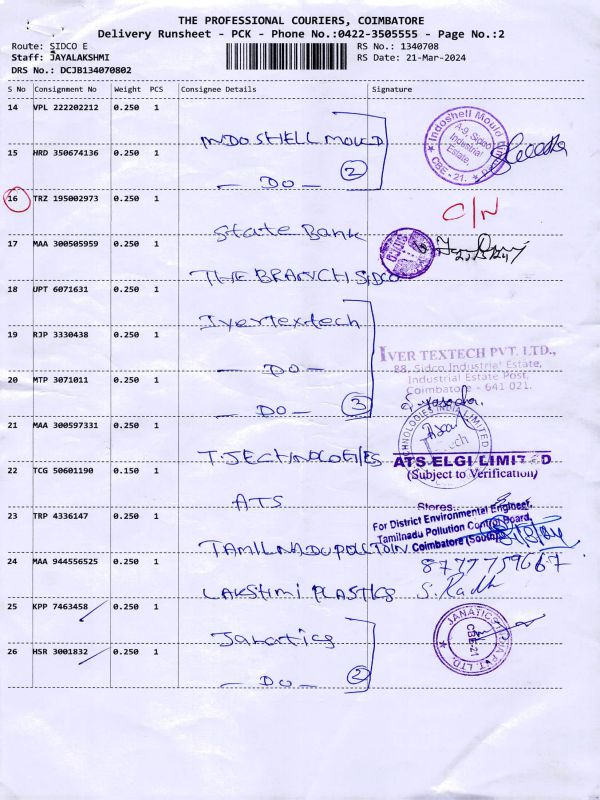 THE PROFESSIONAL COURIERS, COIMBATORE
Delivery Runsheet - PCK - Phone No.:0422-3505555 - Page No.:2
Route: SIDCO E RS No.: 1340708
Staff: JAYALAKSHMI RS Date: 21-Mar-2024
DRS No.: DCJB134070802
S No Consignment No Weight PCS Consignee Details Signature
14 VPL 222202212 0.250 1 INDO SHELL MOULD
Indoshell Mould
A-9, Sidco Industrial Estate, CBE - 21.
15 HRD 350674136 0.250 1 — DO — 2
16 TRZ 195002973 0.250 1 State Bank C/N
17 MAA 300505959 0.250 1 THE BRANCH SIDCO
SIDCO
18 UPT 6071631 0.250 1 Ivertextech
19 RJP 3330438 0.250 1 — DO —
IVER TEXTECH PVT. LTD.,
88, Sidco Industrial Estate,
Industrial Estate Post,
Coimbatore - 641 021.
20 MTP 3071011 0.250 1 — DO — 3
21 MAA 300597331 0.250 1 T.JECTINOLOGIES
22 TCG 50601190 0.150 1 ATS
ATS ELGI LIMITED
(Subject to Verification)
Stores
23 TRP 4336147 0.250 1 TAMILNADU POLLTOIN
For District Environmental Engineer,
Tamilnadu Pollution Control Board,
Coimbatore (South)
24 MAA 944556525 0.250 1 LAKSHMI PLASTICS
8777759667
S. Radh
25 KPP 7463458 0.250 1 Janatics
JANATICS INDIA P. LTD.
CBE-21
26 HSR 3001832 0.250 1 — DO — 2